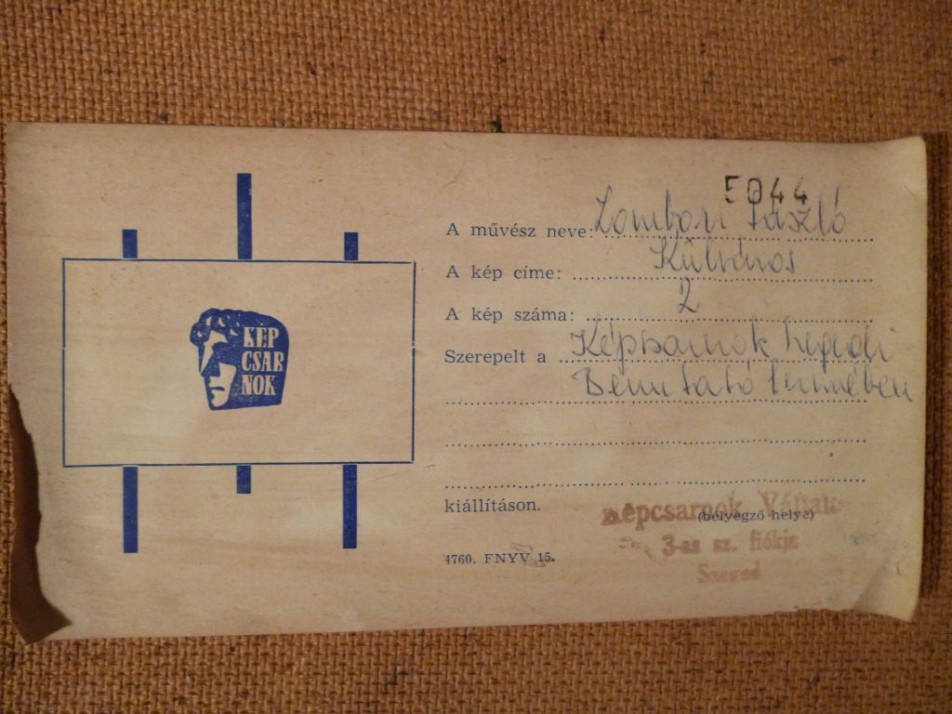 KEP
CSAR
NOK
5044
A művész neve: Zombori László
A kép címe: Külváros
A kép száma: 2
Szerepelt a Képcsarnok szegedi
Bemutató termében
kiállításon.
Képcsarnok Vállalat
(bélyegző helye)
3-as sz. fiókja
Szeged
4760. FNYV 15.